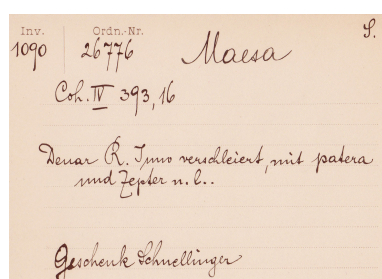 Inv. Ordn.-Nr. S.
1090 26776 Maesa
Coh. IV 393,16
Denar R. Juno verschleiert, mit patera
und Zepter n. l..
Geschenk Schnellinger